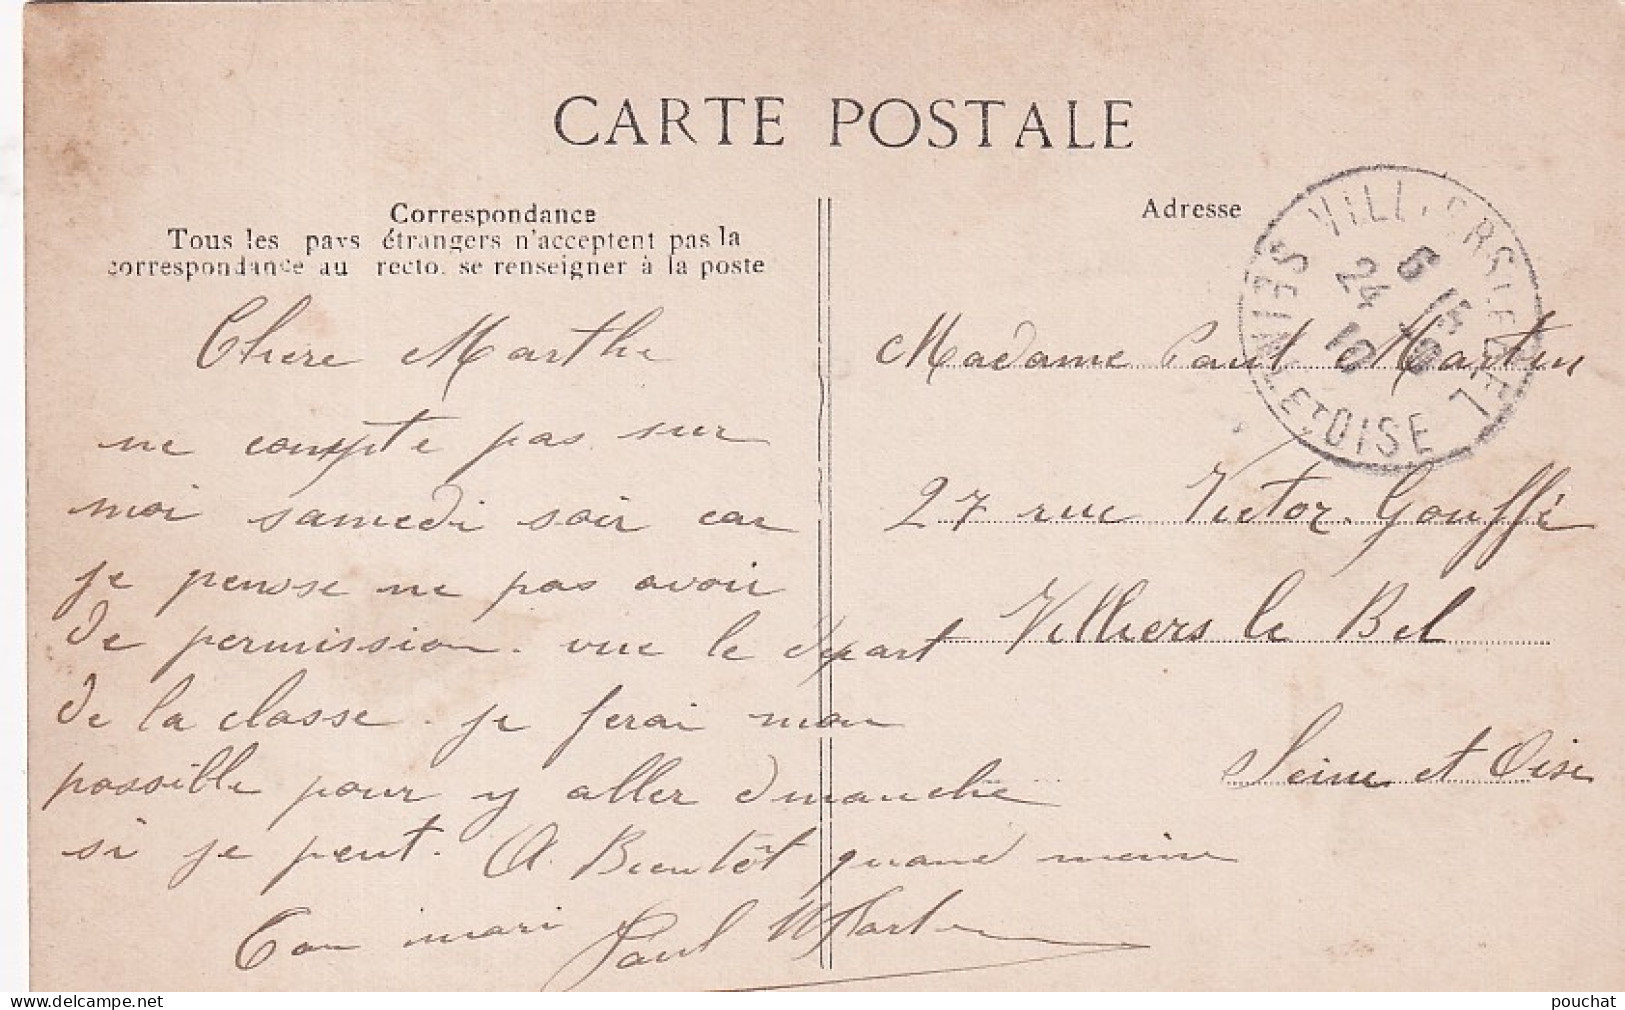 CARTE POSTALE
Correspondance
Tous les pays étrangers n'acceptent pas la
correspondance au recto. se renseigner à la poste
Chere Marthe
ne compte pas sur
moi samedi soir car
je pensse ne pas avoir
de permission. vue le depart
de la classe. je ferai mon
possible pour y aller dmanche
si je peut. A Bientôt quand meme
Ton mari Paul Martin
Adresse
Madame Paul Martin
27 rue Victor Gouffé
Villiers le Bel
Seine et Oise
VILLIERS-LE-BEL
6 15
24 10
SEINE ET OISE
www.delcampe.net
pouchat